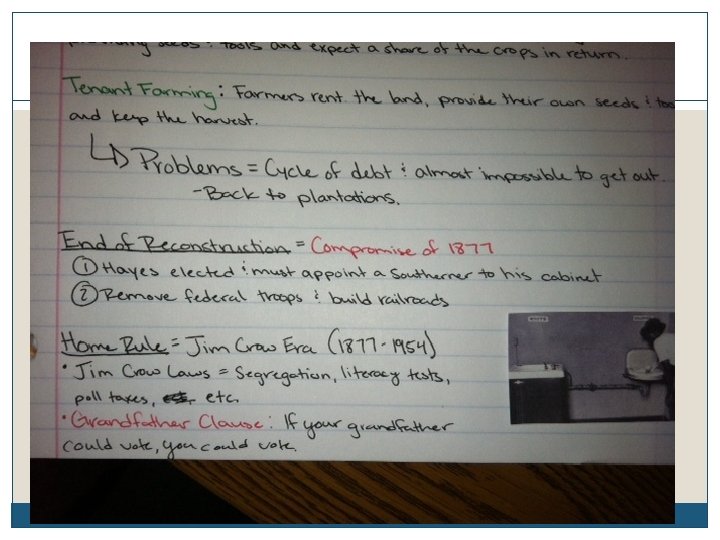 providing seeds & tools and expect a share of the crops in return.
Tenant Farming: Farmers rent the land, provide their own seeds & too
and keep the harvest.
Problems = Cycle of debt & almost impossible to get out.
-Back to plantations.
End of Reconstruction = Compromise of 1877
① Hayes elected & must appoint a Southerner to his cabinet
② Remove federal troops & build railroads
Home Rule = Jim Crow Era (1877-1954)
• Jim Crow Laws = Segregation, literacy tests,
poll taxes, etc.
• Grandfather Clause: If your grandfather
could vote, you could vote.
WHITE